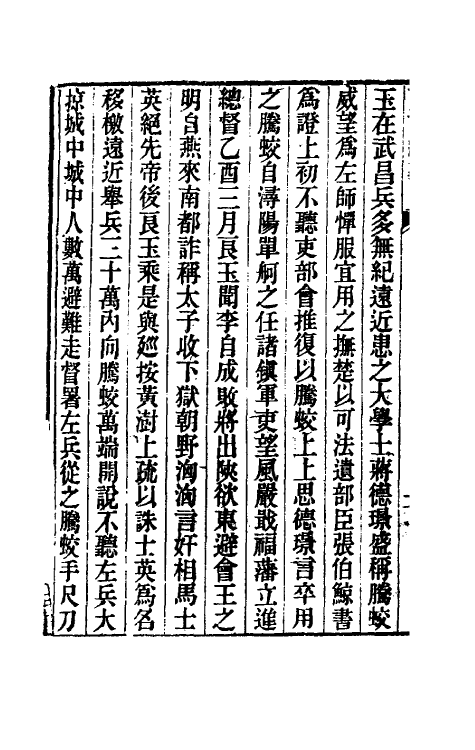 玉在武昌兵多無紀遠近患之大學士蔣德璟盛稱騰蛟
威望爲左師憚服宜用之撫楚以可法遺部臣張伯鯨書
爲證上初不聽吏部會推復以騰蛟上上思德璟言卒用
之騰蛟自潯陽單舸之任諸鎮軍吏望風嚴戢福藩立進
總督乙酉三月良玉聞李自成敗將出陝欲東避會王之
明自燕來南都詐稱太子收下獄朝野洶洶言奸相馬士
英絕先帝後良玉乘是與廵按黃澍上疏以誅士英爲名
移檄遠近舉兵三十萬內向騰蛟萬端開說不聽左兵大
掠城中城中人數萬避難走督署左兵從之騰蛟手尺刀